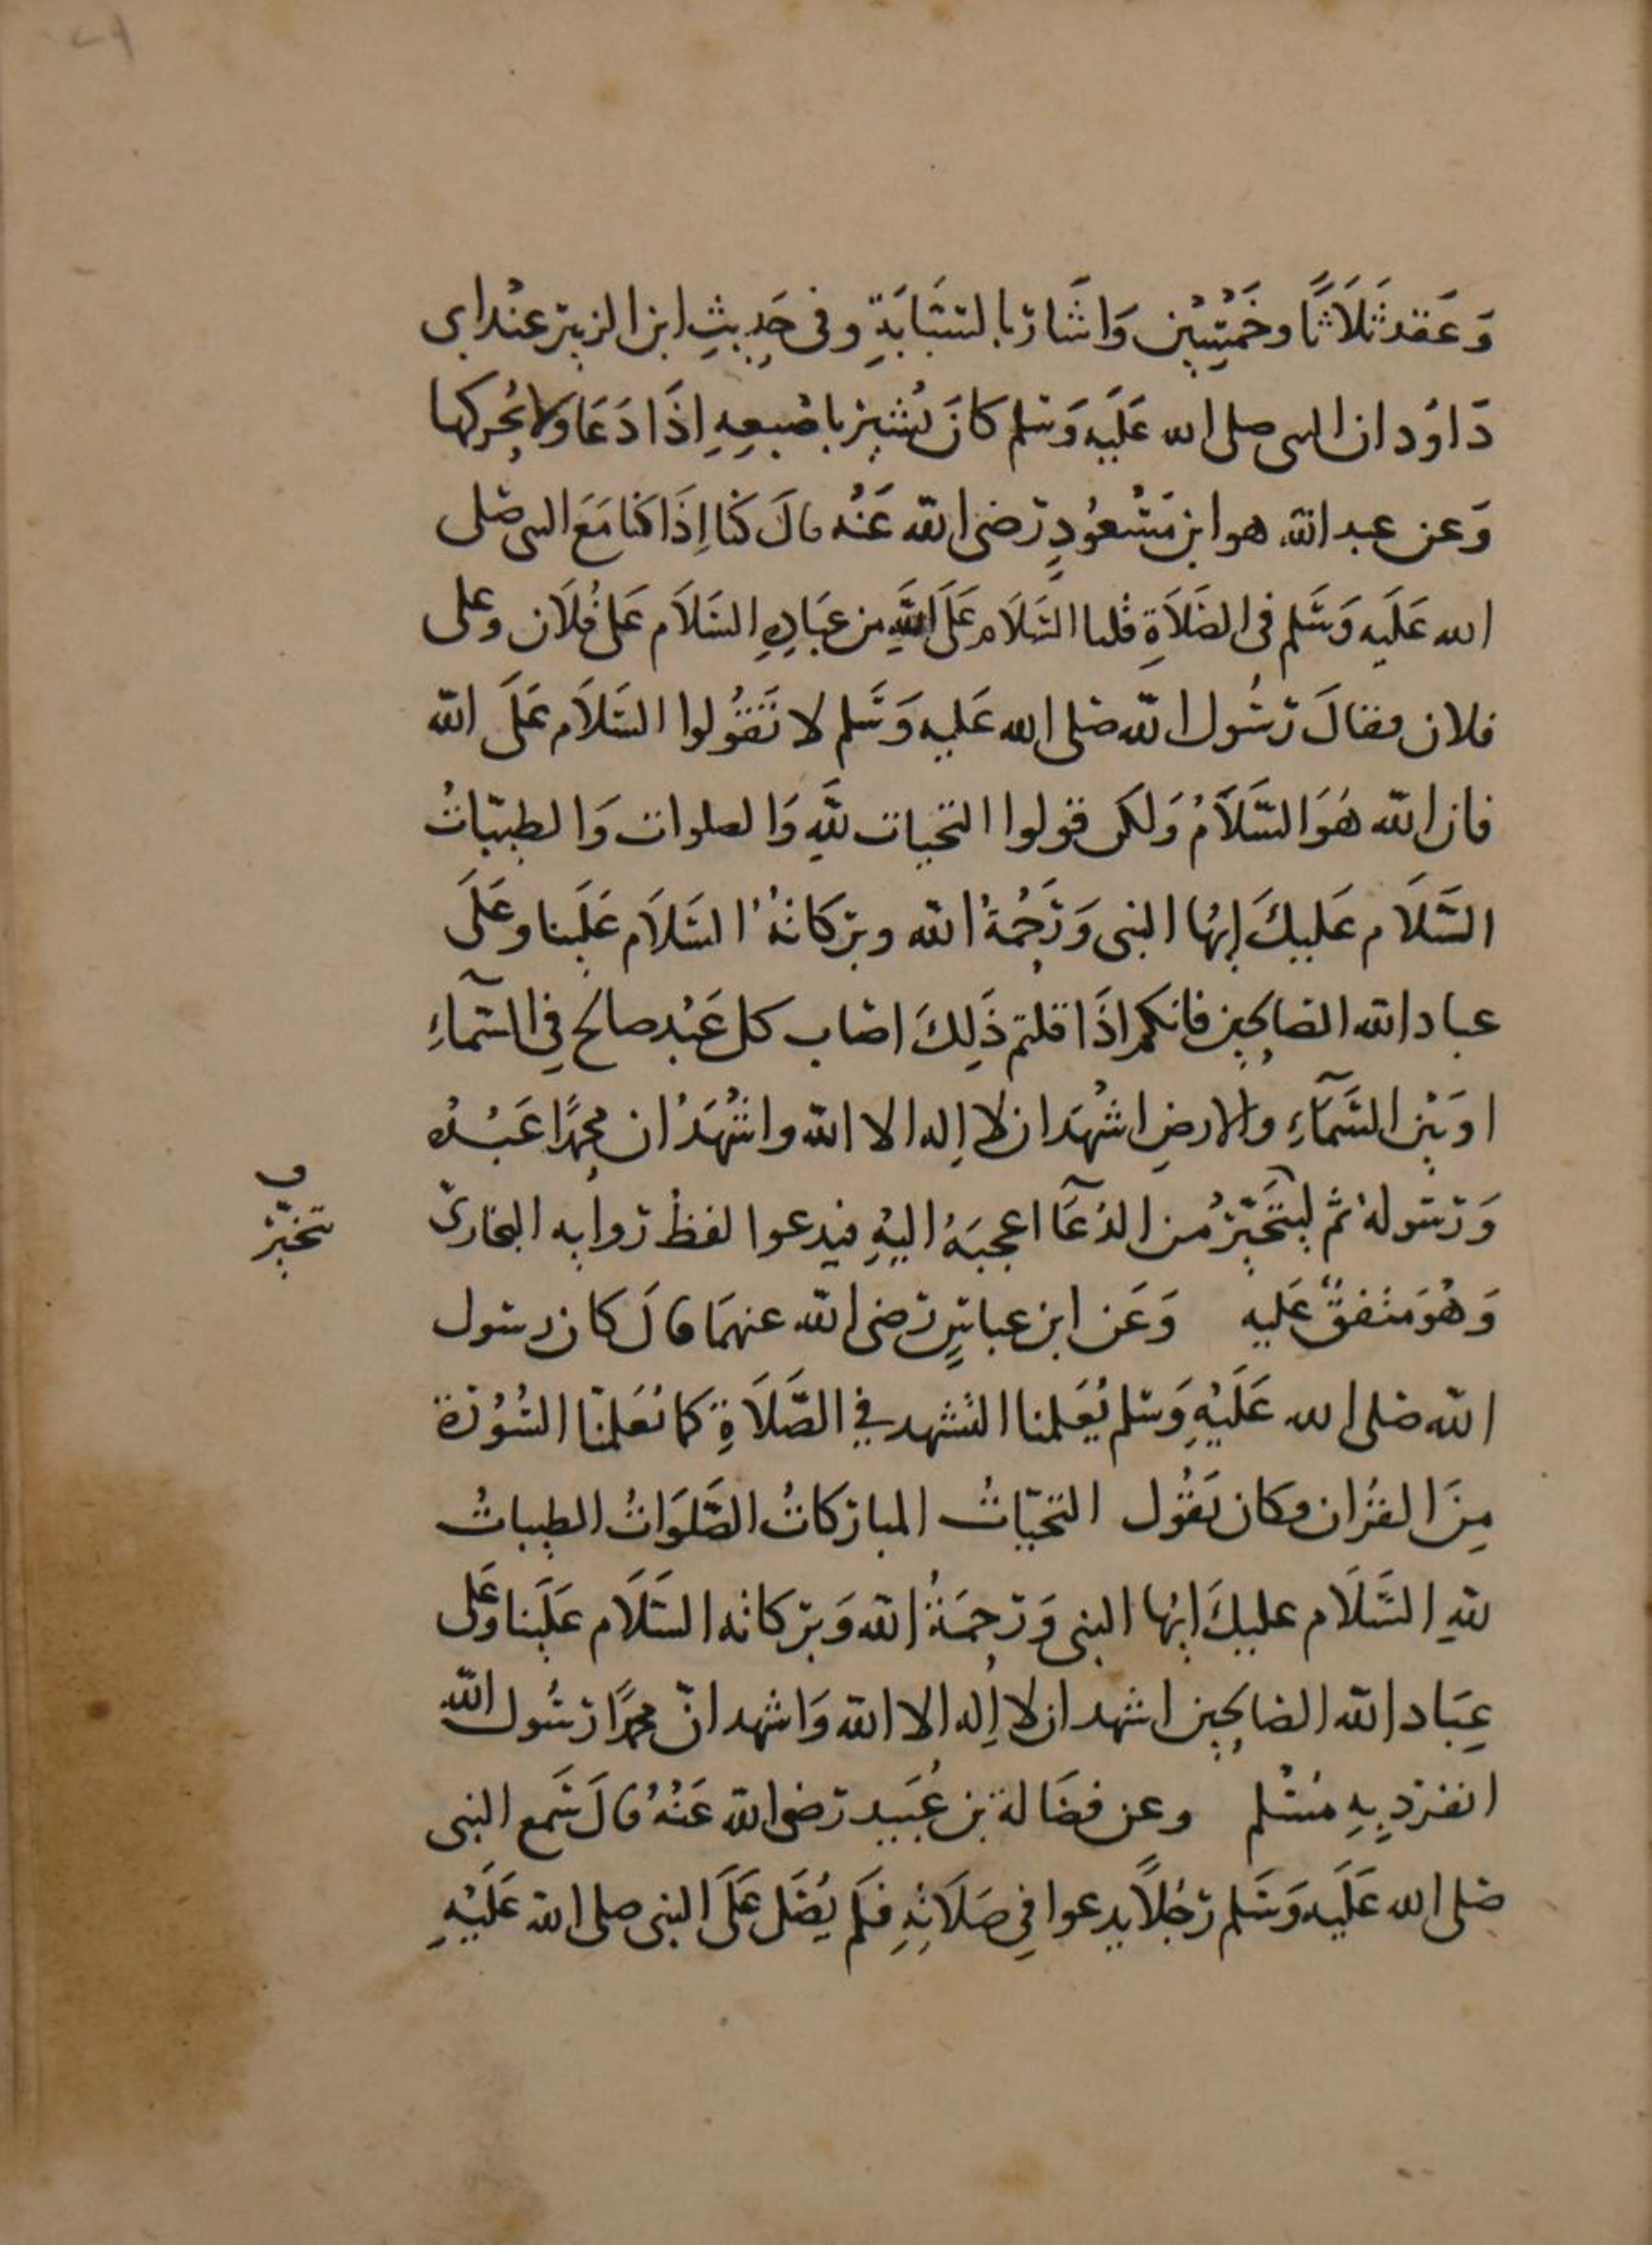 وَعَقد ثَلَاثًا وخَمْسِين وَاشَار بالسَّبَّابَةِ وفى حَدِيثِ ابن الزبير عنْد ابى
دَاوُد ان النبى صلى الله عَلَيه وَسلم كانَ يُشير باصْبعِهِ اِذَا دَعَا وَلا يُحركها
وَعن عبد الله هو ابن مَسْعُودٍ رَضى الله عَنْه قالَ كنا اِذَا كنا مَعَ النبى صَلى
الله عَلَيه وَسَلم فى الصَلَاةِ قلنا السَلَام عَلَى اللَّهِ من عِبَادِهِ السَلَام عَلى فُلَان وعلى
فلان فقالَ رسُول الله صَلى الله عَليه وَسَلم لا تَقُولوا السَلَام عَلَى الله
فان الله هُوَ السَّلَامُ وَلكن قولوا التحيات لِلَّهِ وَالصلوات وَالطيبّاتُ
السَّلَام عَليكَ ايُها النبى وَرَحْمَةُ الله وبرَكاتهُ السَلَام عَلَينا وعَلَى
عباد الله الصَالِحِين فانكم اِذَا قلتم ذَلِكَ اصَاب كل عَبْد صالح فِى السّمآءِ
او بَيْن السَّمَآءِ والارضِ اشْهَد ان لا اِله الا الله واشْهَدُ ان محمدًا عَبْدُه
وَرَسُوله ثم ليَتَخَيّرْ من الدُعَآ اعجبَهُ اليْهِ فيدعوا لفظ روايه البخارىّ
تخيّر
وَهُوَ متفقٌ عَليه وَعَن ابن عباسٍ رَضى الله عنهمَا قالَ كان رسول
الله صَلى الله عَلَيْهِ وَسَلم يُعَلمنا التشهد فِي الصَّلَاةِ كما يُعَلمنَا السُّوْرَة
مِنَ القُران وكان يَقُول التحيّاتُ المباركاتُ الصَّلَوَاتُ الطيباتُ
لِلهِ السَّلَام عليكَ ايُها النبى وَرَحمَةُ الله وَبَركاته السَلَام عَلَينا وَعَلى
عِبَاد الله الصَالِحِين اشهد ان لا اِله الا الله وَاشهد انّ محمدًا رَسُول الله
انفرَد بِهِ مُسْلم وعن فضَالة بن عُبَيد رَضى الله عَنْهُ قالَ سَمع النبى
صَلى الله عَلَيه وَسَلم رَجُلًا يدعوا فِي صَلَاتِهِ فلَم يُصَل عَلَى النبى صلى الله عَلَيْهِ